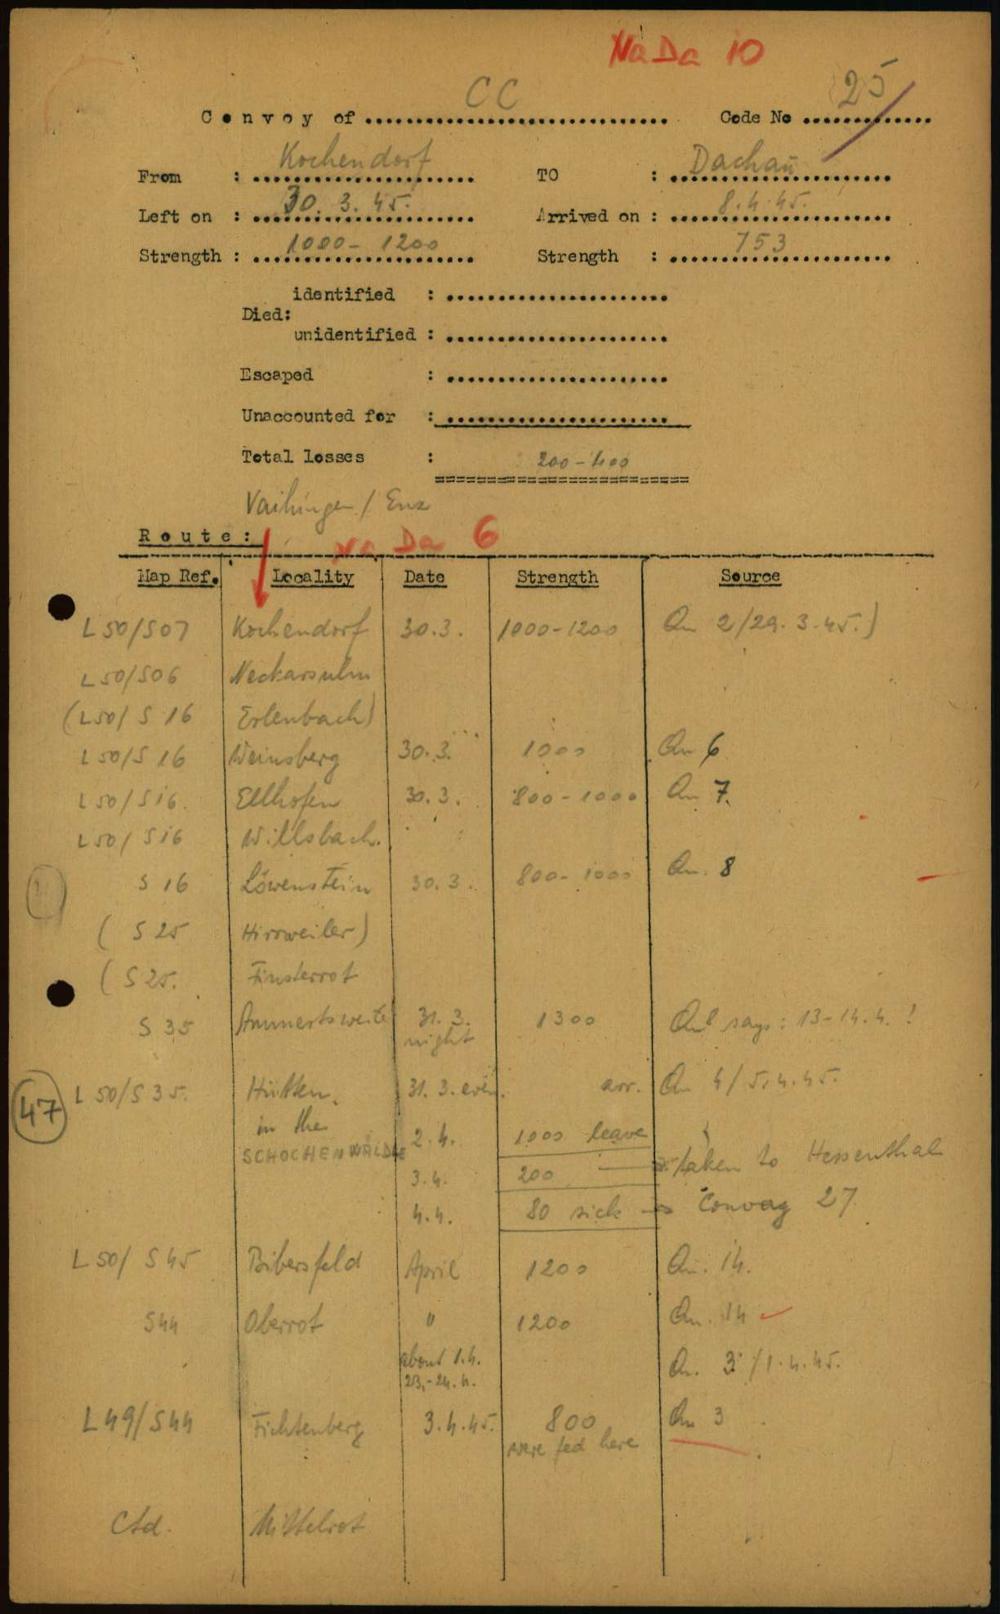 NaDa 10
25
Convoy of CC Code No
From : Kochendorf TO : Dachau
Left on : 30. 3. 45. Arrived on : 8.4.45.
Strength : 1000-1200 Strength : 753
identified :
Died:
unidentified :
Escaped :
Unaccounted for :
Total losses : 200-400
Vaihingen / Enz
Route: Na Da 6
Map Ref. Locality Date Strength Source
L50/S07 Kochendorf 30.3. 1000-1200 Qu 2/29.3.45.)
L50/S06 Neckarsulm
(L50/S 16 Erlenbach)
L50/S 16 Weinsberg 30.3. 1000 Qu 6
L50/S16. Ellhofen 30.3. 800-1000 Qu 7.
L50/S16 Willsbach.
S 16 Löwenstein 30.3. 800-1000 Qu. 8
( S 25 Hirrweiler)
( S 25. Finsterrot
S 35 Ammertsweiler 31.3. 1300 Qu8 says: 13-14.4. !
night
47 L50/S35. Hütten, 31.3. even. arr. Qu 4/5.4.45.
in the 2.4. 1000 leave
SCHOCHENWÄLDLE
3.4. 200 → taken to Hessenthal
4.4. 80 sick → Convoy 27
L50/ S45 Bibersfeld April 1200 Qu. 14.
S44 Oberrot " 1200 Qu. 14
about 1.4. Qu. 3 /1.4.45.
23.-24.4.
L49/S44 Fichtenberg 3.4.45. 800 Qu 3
were fed here
Ctd. Mittelrot